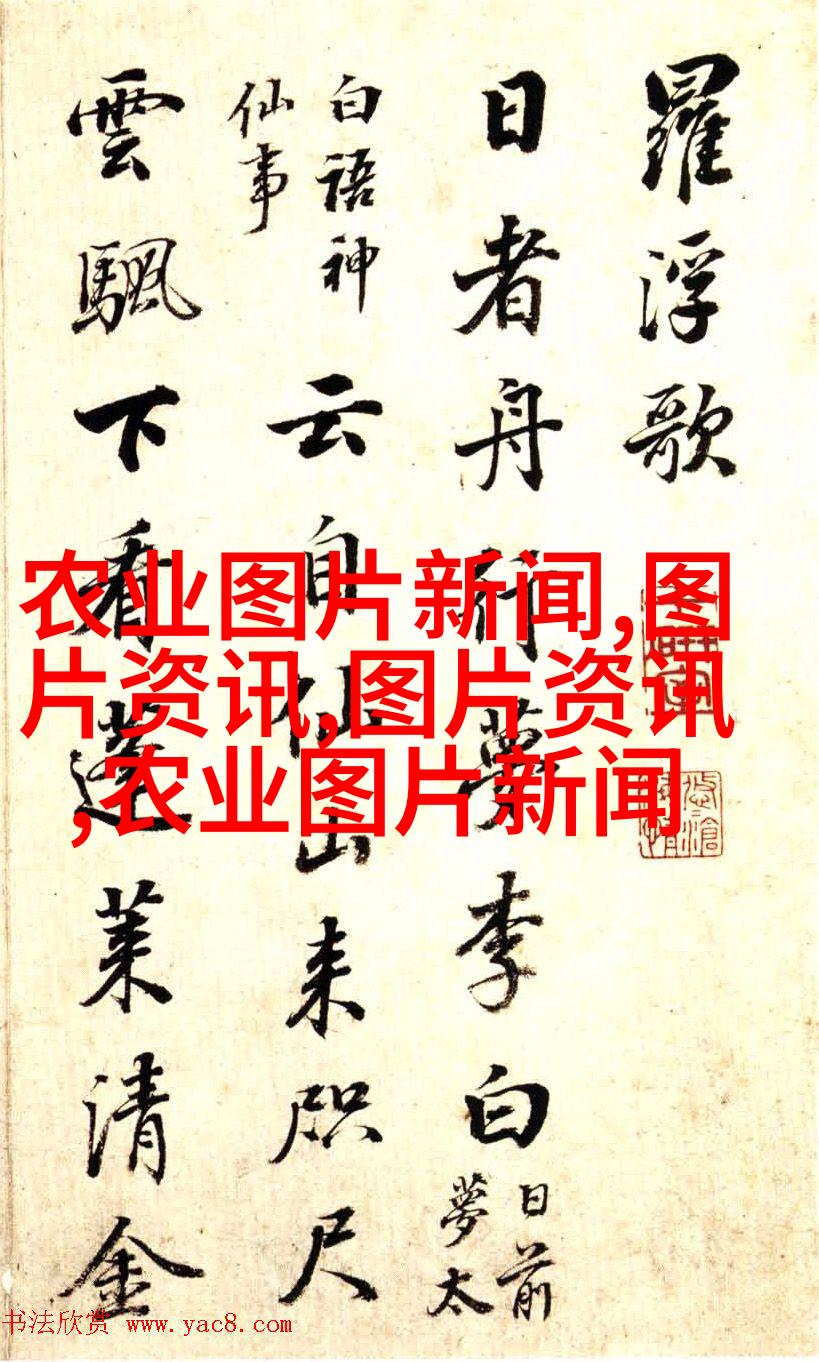 羅浮歌
日者舟行夢李白
日前
夢太
白語神
仙事
云自仙山来咫尺
雲颿下看蓬莱清金
农业图片新闻,图
片资讯,图片资讯
,农业图片新闻
书法欣赏 www.yac8.com